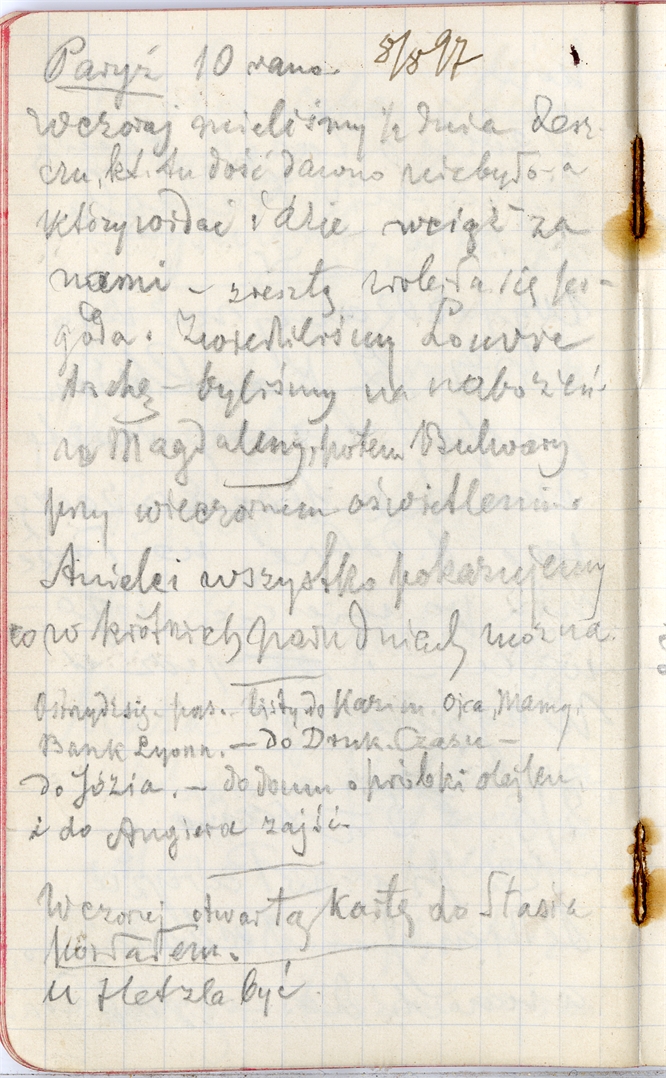 Paryż 10 rano 8/8 97
Wczoraj mieliśmy ½ dnia desz-
czu, kt. tu dość dawno niebyło - a
który widać idzie wciąż za
nami - zresztą zrobiła się po-
goda. Zwiedziliśmy Louvre
trochę - byliśmy na nabożeń.
w Magdaleny, potem Bulwary
przy wieczornem oświetleniu.
Anielci wszystko pokazujemy
co w krótkich paru dniach można.
listy do Kazim. Ojca, Mamy.
Bank Lyonn. - Do Druk. Czasu -
do Józia. - do domu o próbki olejku
i do Angiera zajść.
Wczoraj otwartą kartę do Stasia
posłałem.
U Hetzla być